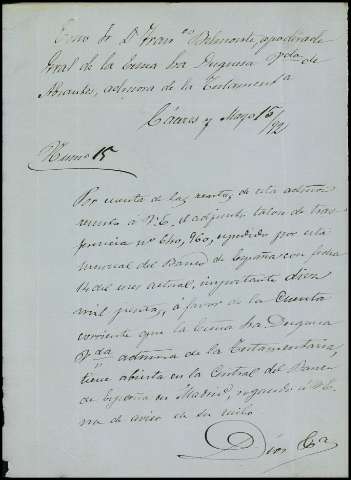 Excmo Sr. D. Franco Belmonte, apoderado
Gral de la Excma Sra Duquesa Vda de
Abrantes, admora de la Testamenta
Cáceres y Mayo 15/92
Numo 15
Por cuenta de las rentas de esta admon
remito á V.E. el adjunto talon de tras-
ferencia no 640,960, expedido por esta
sucursal del Banco de España con fecha
14 del mes actual, importante diez
mil pesetas, á favor de la Cuenta
corriente que la Excma Sra Duquesa
Vda admora de la Testamentaria,
tiene abierta en la Central del Banco
de España en Madrid, rogando á V.E.
me dé aviso de su recibo
Dios &a